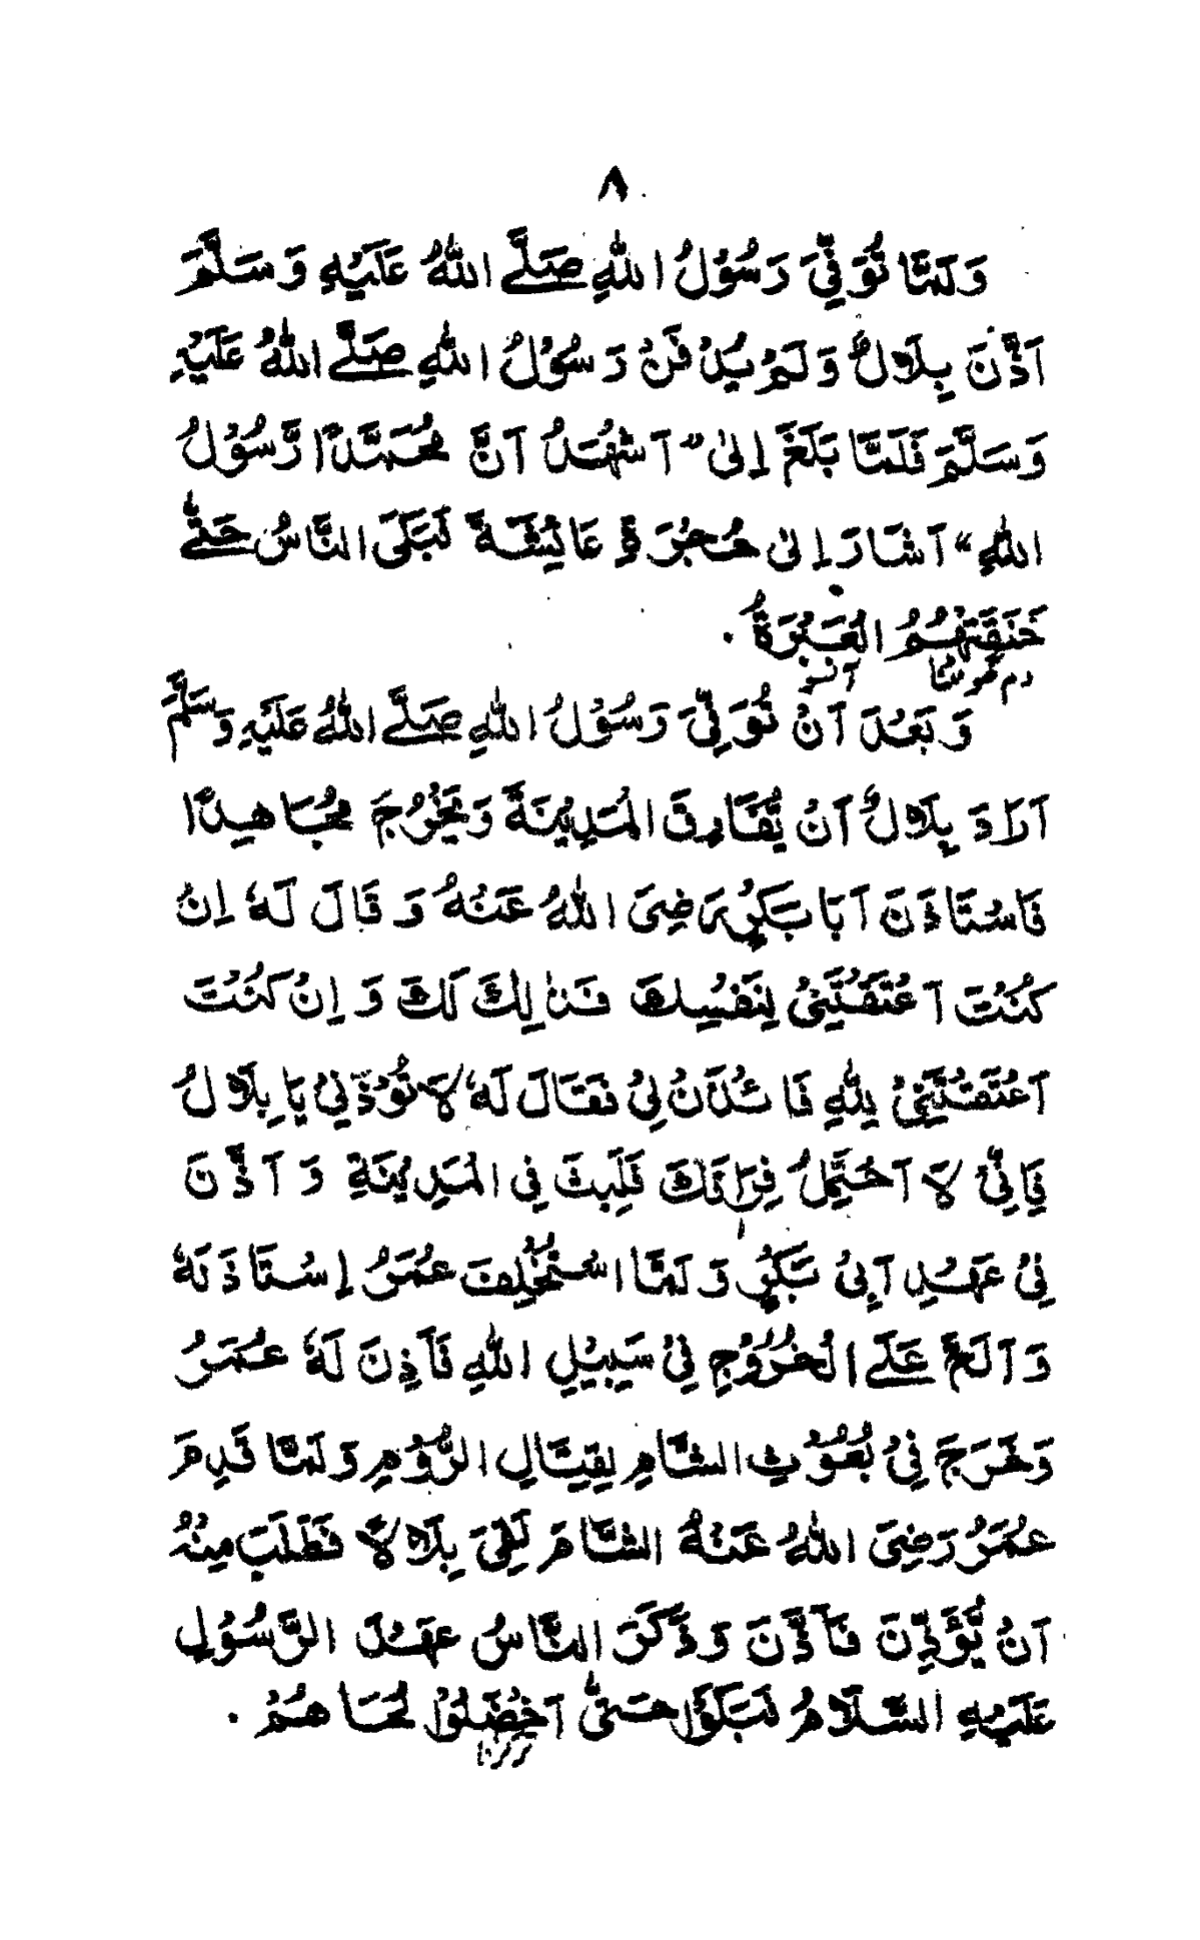 ٨
وَلَمَّا تُوَفِّيَ رَسُوْلُ اللهِ صَلَّے اللهُ عَلَيْهِ وَسَلَّمَ
اَذَّنَ بِلَالٌ وَلَمْ يُدْفَنْ رَسُوْلُ اللهِ صَلَّے اللهُ عَلَيْهِ
وَسَلَّمَ فَلَمَّا بَلَغَ اِلىٰ "اَشْهَدُ اَنَّ مُحَمَّدًا رَّسُوْلُ
اللهِ" اَشَارَ اِلىٰ حُجْرَةِ عَائِشَةَ فَبَكَى النَّاسُ حَتّٰے
خَنَقَتْهُمُ الْعَبْرَةُ .
دم گھونٹنا آنسو
وَبَعْدَ اَنْ تُوَفِّيَ رَسُوْلُ اللهِ صَلَّے اللهُ عَلَيْهِ وَسَلَّمَ
اَرَادَ بِلَالٌ اَنْ يُّفَارِقَ الْمَدِيْنَةَ وَيَخْرُجَ مُجَاهِدًا
فَاسْتَاذَنَ اَبَا بَكْرٍ رَضِىَ اللهُ عَنْهُ وَقَالَ لَهٗ اِنْ
كُنْتَ اَعْتَقْتَنِىْ لِنَفْسِكَ فَذَالِكَ لَكَ وَاِنْ كُنْتَ
اَعْتَقْتَنِىْ لِلّٰهِ فَائْذَنْ لِىْ فَقَالَ لَهٗ لَا تُؤْذِنِىْ يَا بِلَالُ
فَاِنِّىْ لَا اَحْتَمِلُ فِرَاقَكَ فَلَبِثَ فِى الْمَدِيْنَةِ وَاَذَّنَ
فِىْ عَهْدِ اَبِىْ بَكْرٍ وَلَمَّا اسْتُخْلِفَ عُمَرُ اِسْتَاذَنَهٗ
وَاَلَحَّ عَلَے الْخُرُوْجِ فِىْ سَبِيْلِ اللهِ فَاَذِنَ لَهٗ عُمَرُ
وَخَرَجَ فِىْ بُعُوْثِ الشَّامِ لِقِتَالِ الرُّوْمِ وَلَمَّا قَدِمَ
عُمَرُ رَضِىَ اللهُ عَنْهُ الشَّامَ لَقِىَ بِلَالًا فَطَلَبَ مِنْهُ
اَنْ يُّؤَذِّنَ فَاَذَّنَ وَذَكَرَ النَّاسُ عَهْدَ الرَّسُوْلِ
عَلَيْهِ السَّلَامُ فَبَكَوْا حَتّٰى اَخْضَلُوْا لُحَاهُمْ .